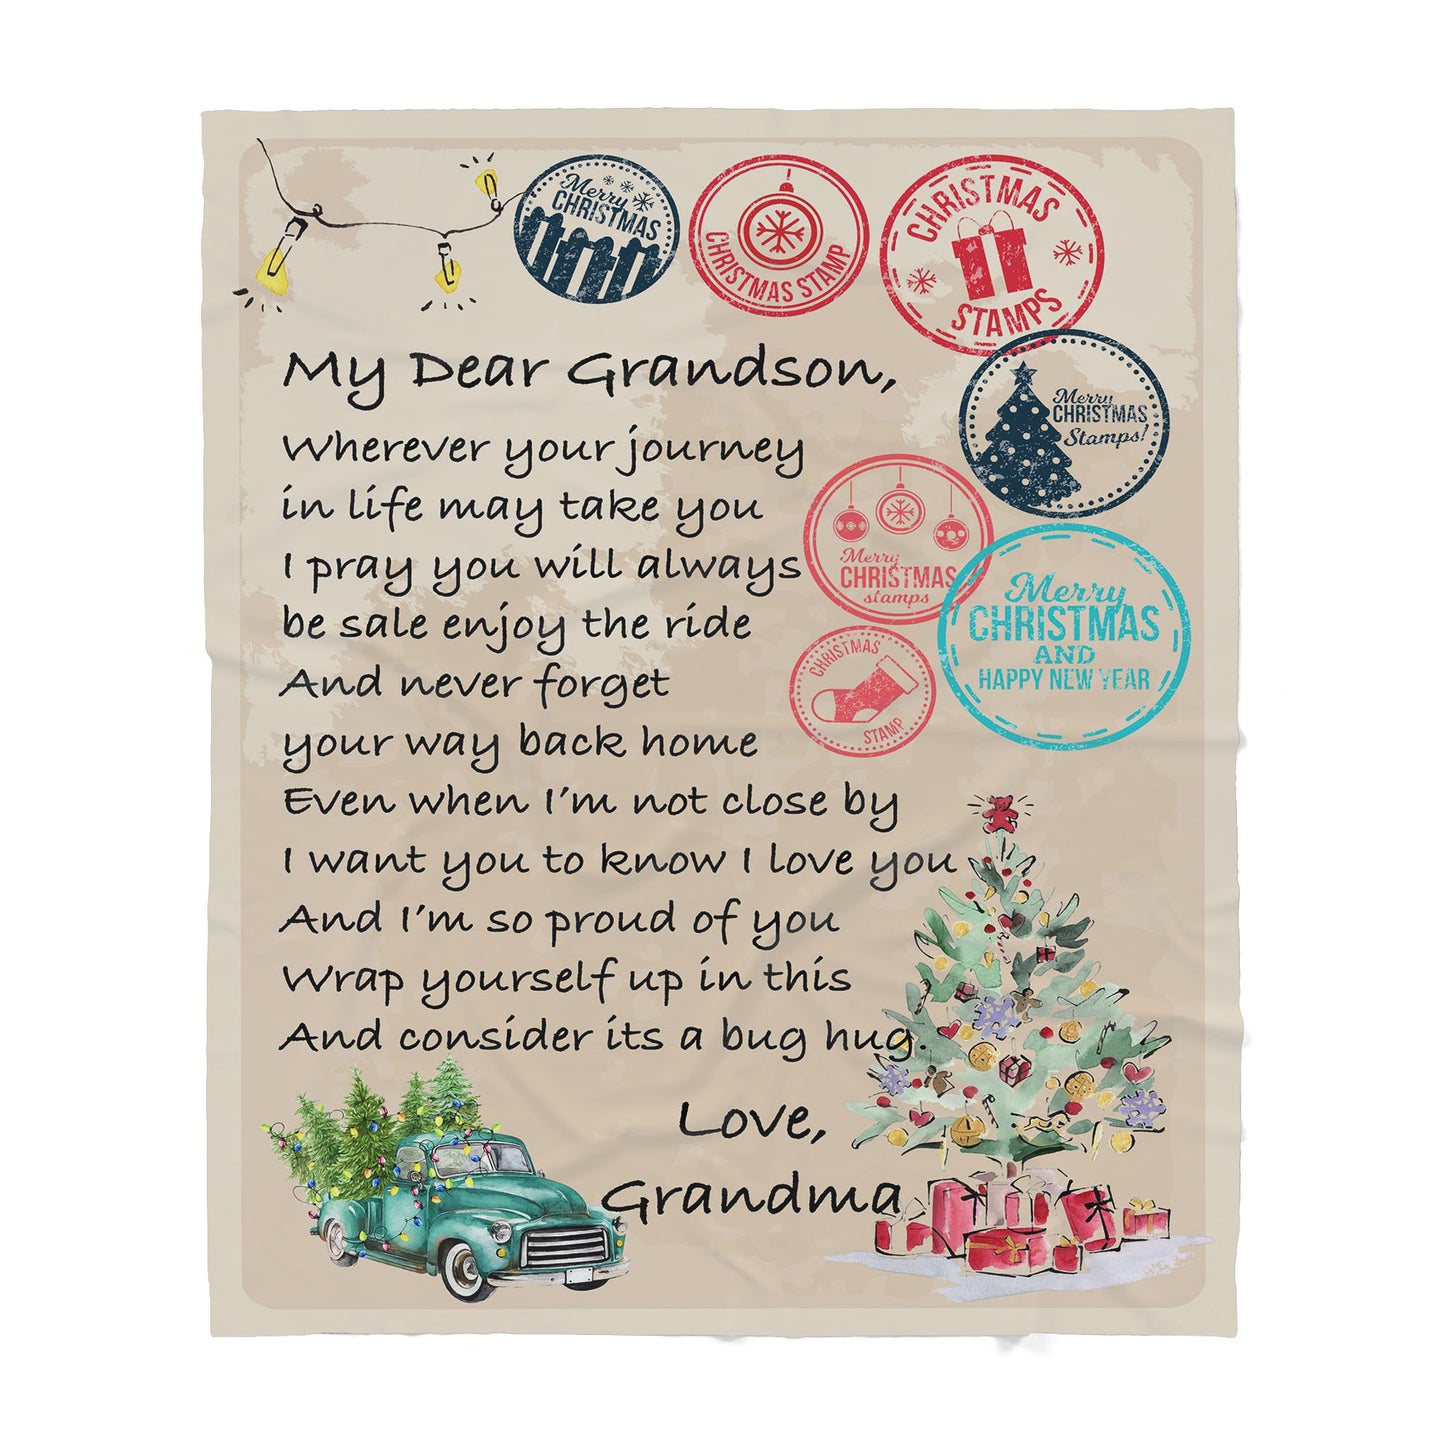 Merry
CHRISTMAS
CHRISTMAS STAMP
CHRISTMAS
STAMPS
My Dear Grandson,
Merry
CHRISTMAS
Stamps!
Wherever your journey
in life may take you
I pray you will always
be sale enjoy the ride
And never forget
your way back home
Even when I'm not close by
I want you to know I love you
And I'm so proud of you
Wrap yourself up in this
And consider its a bug hug.
Love,
Grandma
Merry
CHRISTMAS
stamps
Merry
CHRISTMAS
AND
HAPPY NEW YEAR
CHRISTMAS
STAMP